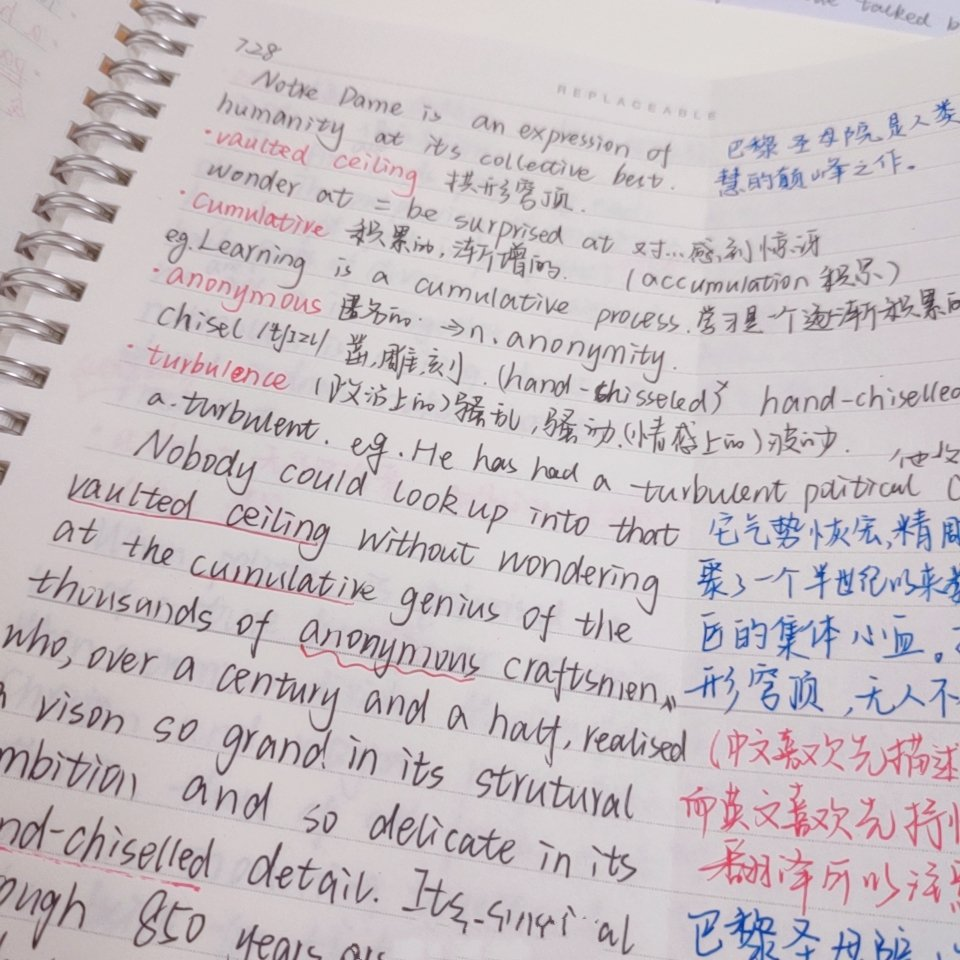 talked b
7.28
REPLACEABLE
Notre Dame is an expression of
humanity at its collective best.
巴黎圣母院是人类
慧的巅峰之作。
·vaulted ceiling 拱形穹顶.
wonder at = be surprised at 对…感到惊讶
·cumulative 积累的,渐增的. (accumulation 积累)
eg. Learning is a cumulative process. 学习是一个逐渐积累的
·anonymous 匿名的. → n. anonymity.
chisel 凿,雕刻. (hand-chisseled) hand-chiselled
·turbulence (政治上的)骚乱,骚动.(情感上的)波动.
a. turbulent. eg. He has had a turbulent political
Nobody could look up into that
vaulted ceiling without wondering
at the cumulative genius of the
thousands of anonymous craftsmen,
who, over a century and a half, realised
vison so grand in its strutural
mbition and so delicate in its
nd-chiselled detail. Its
ough 850 years
它气势恢宏,精
聚了一个半世纪以来
匠的集体心血。
形穹顶,无人不
(中文喜欢先描述
而英文喜欢先抒
翻译所以注意
巴黎圣母院